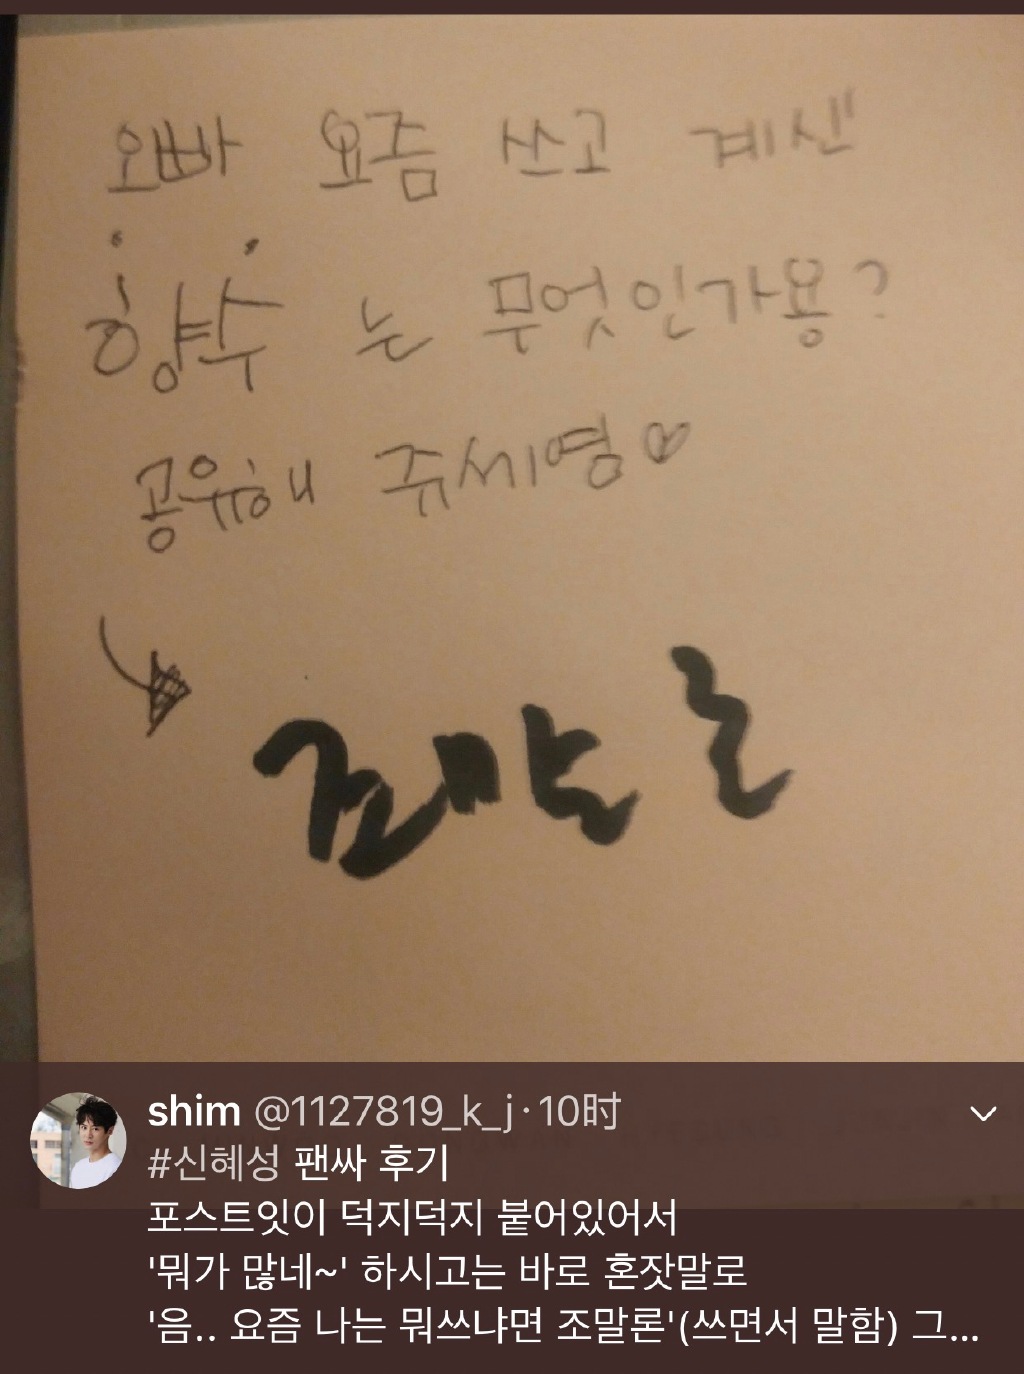 오빠 요즘 쓰고 계신
향수 는 무엇인가용?
공유해 쥬세영♡
조말론
shim @1127819_k_j · 10时
#신혜성 팬싸 후기
포스트잇이 덕지덕지 붙어있어서
'뭐가 많네~' 하시고는 바로 혼잣말로
'음.. 요즘 나는 뭐쓰냐면 조말론'(쓰면서 말함) 그...